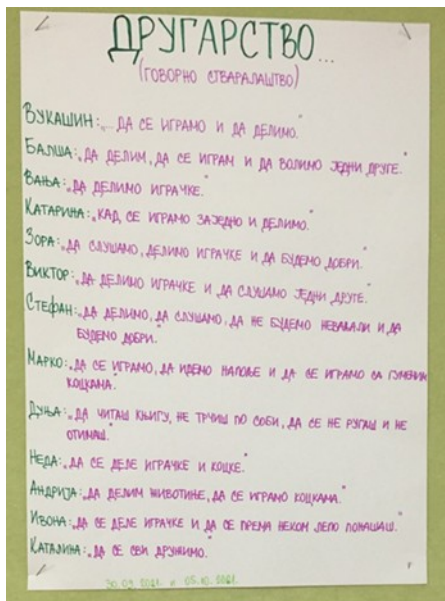 ДРУГАРСТВО...
(ГОВОРНО СТВАРАЛАШТВО)
ВУКАШИН: „... ДА СЕ ИГРАМО И ДА ДЕЛИМО.”
БАЛША: „ДА ДЕЛИМ, ДА СЕ ИГРАМ И ДА ВОЛИМО ЈЕДНИ ДРУГЕ.”
ВАЊА: „ДА ДЕЛИМО ИГРАЧКЕ.”
КАТАРИНА: „КАД СЕ ИГРАМО ЗАЈЕДНО И ДЕЛИМО.”
ЗОРА: „ДА СЛУШАМО, ДЕЛИМО ИГРАЧКЕ И ДА БУДЕМО ДОБРИ.”
ВИКТОР: „ДА ДЕЛИМО ИГРАЧКЕ И ДА СЛУШАМО ЈЕДНИ ДРУГЕ.”
СТЕФАН: „ДА ДЕЛИМО, ДА СЛУШАМО, ДА НЕ БУДЕМО НЕВАЉАЛИ И ДА
БУДЕМО ДОБРИ.”
МАРКО: „ДА СЕ ИГРАМО, ДА ИДЕМО НАПОЉЕ И ДА СЕ ИГРАМО СА ГУМЕНИМ
КОЦКАМА.”
ДУЊА: „ДА ЧИТАШ КЊИГУ, НЕ ТРЧИШ ПО СОБИ, ДА СЕ НЕ РУГАШ И НЕ
ОТИМАШ.”
НЕДА: „ДА СЕ ДЕЛЕ ИГРАЧКЕ И КОЦКЕ.”
АНДРИЈА: „ДА ДЕЛИМ ЖИВОТИЊЕ, ДА СЕ ИГРАМО КОЦКАМА.”
ИВОНА: „ДА СЕ ДЕЛЕ ИГРАЧКЕ И ДА СЕ ПРЕМА НЕКОМ ЛЕПО ПОНАШАШ.”
КАТАЛИНА: „ДА СЕ СВИ ДРУЖИМО.”
30.09.2021. и 05.10.2021.